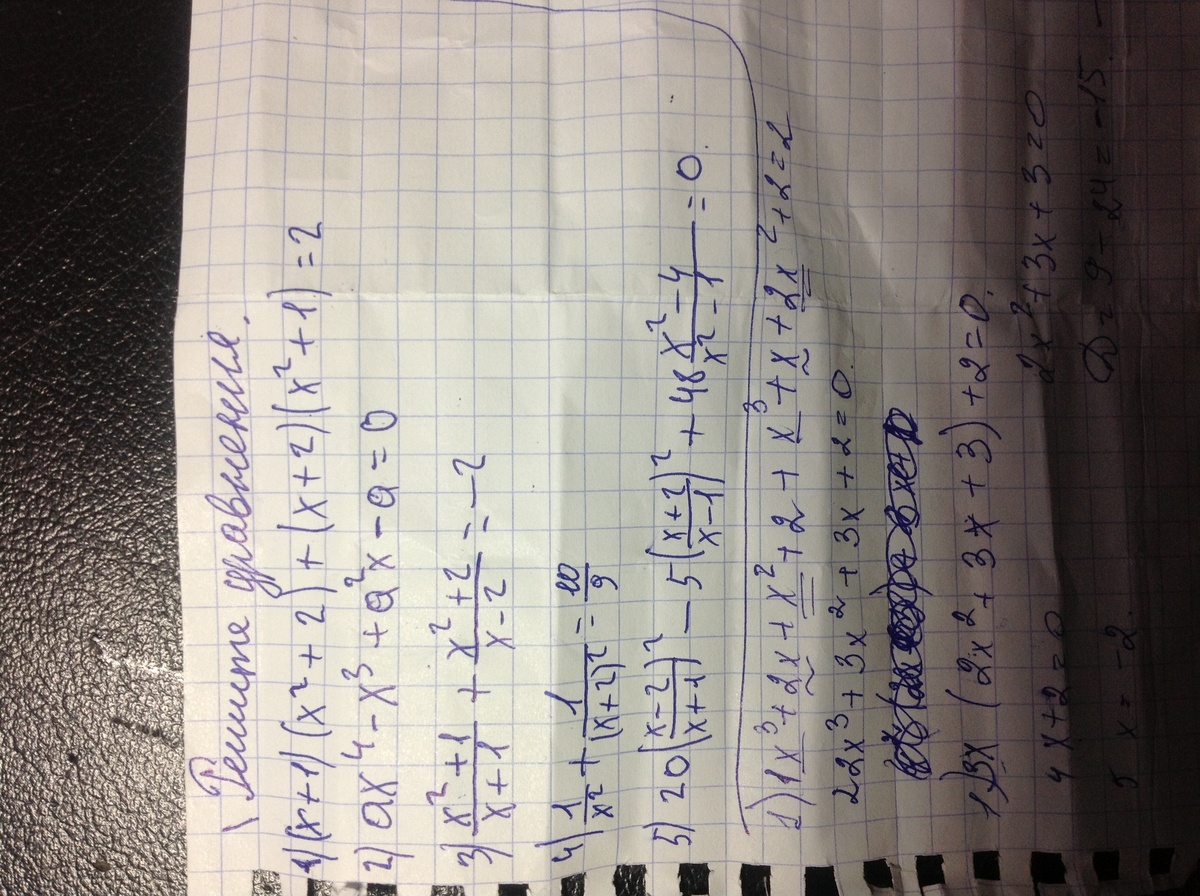 Решите уравнения.
1) (x+1)(x²+2)+(x+2)(x²+1)=2
2) ax⁴-x³+a²x-a=0
3) \frac{x²+1}{x+1} + \frac{x²+2}{x-2} = -2
4) \frac{1}{x²} + \frac{1}{(x+2)²} = \frac{10}{9}
5) 20(\frac{x-2}{x+1})² - 5(\frac{x+2}{x-1})² + 48\frac{x²-4}{x²-1} = 0.
1) 1x³+2x+x²+2+x³+x+2x²+2=2
2 2x³+3x²+3x+2=0.
x(2x²+3x+3)+2=0.
4 x+2=0 2x²+3x+3=0
5 x=-2. D=9-24=-15.